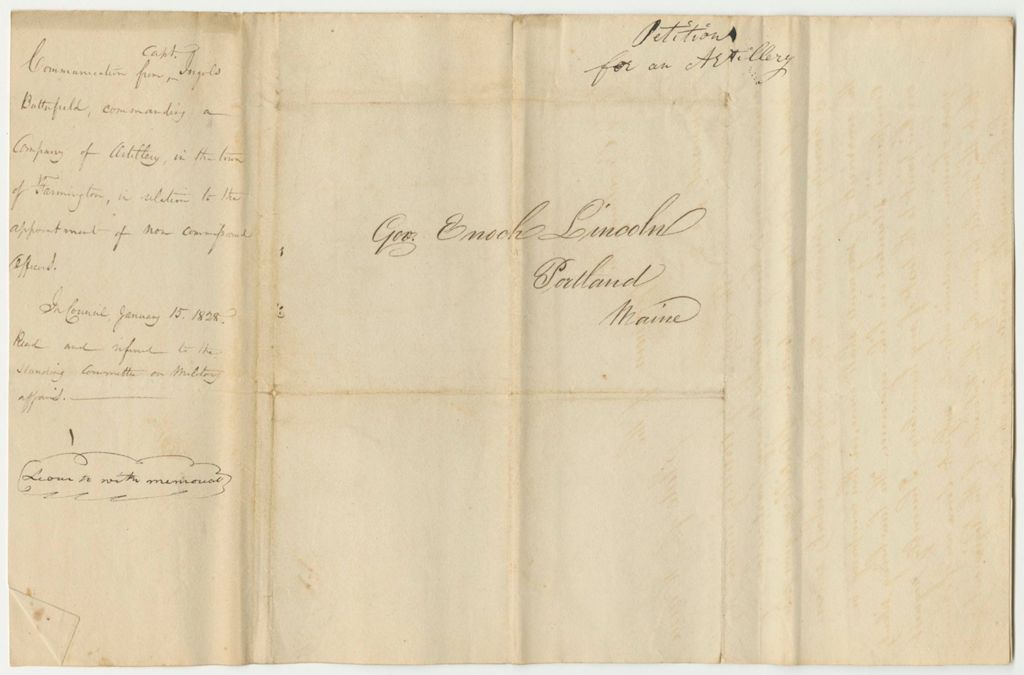 Capt.
Communication from Ingols
Butterfield, commanding a
Company of Artillery, in the town
of Farmington, in relation to the
appointment of non commissioned
officers.
In Council, January 15. 1828.
Read and referred to the
Standing Committee on Military
affairs.
Leave to with memorial
Petition
for an Artillery
Gov. Enoch Lincoln
Portland
Maine